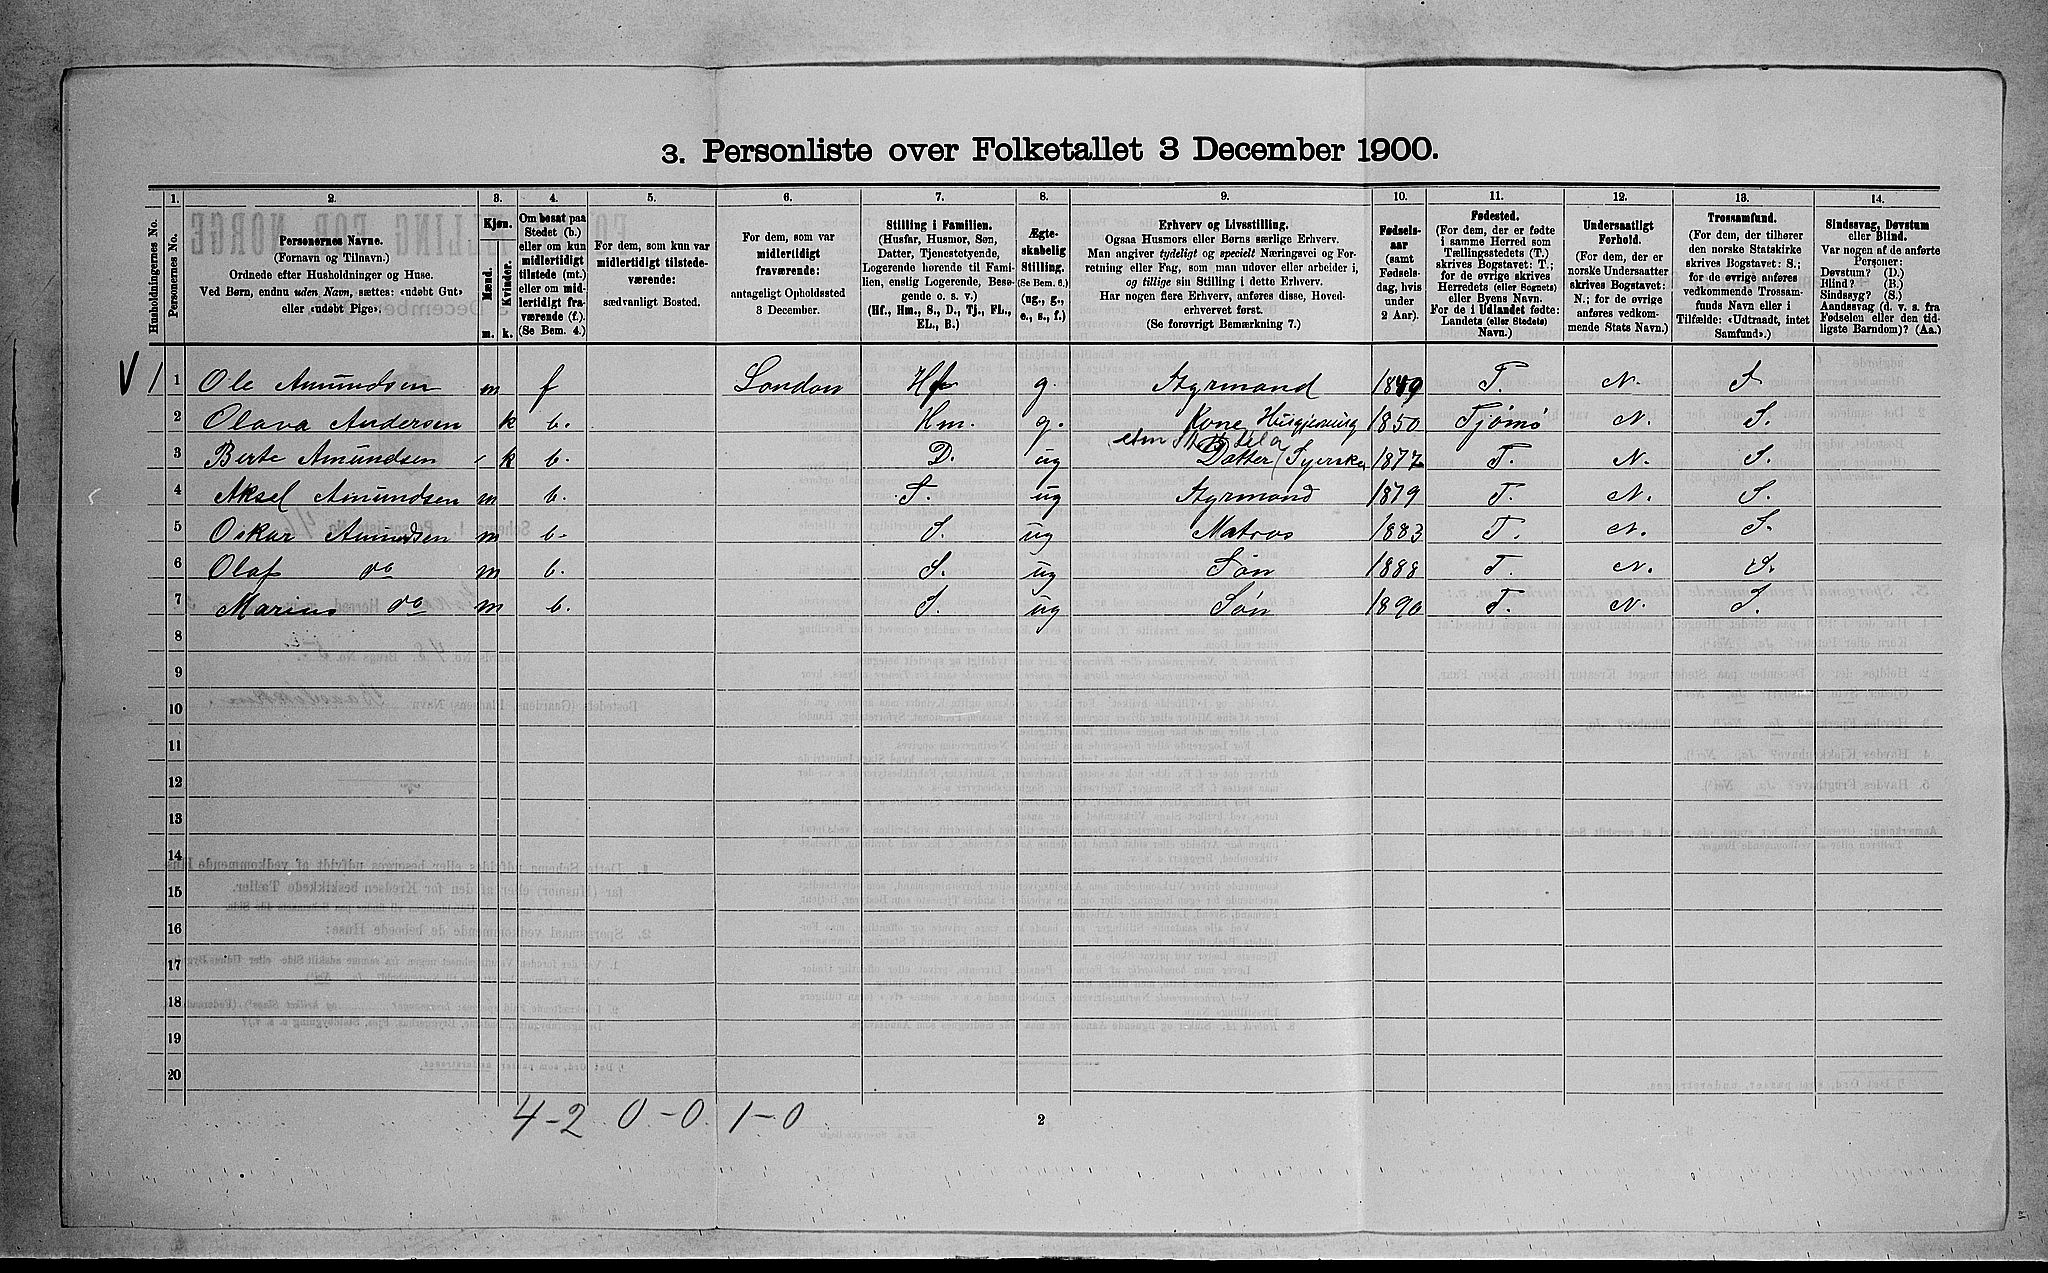 3. Personliste over Folketallet 3 December 1900.
1. 2. 3. 4. 5. 6. 7. 8. 9. 10. 11. 12. 13. 14.
Husholdningernes No.
Personernes No.
Personernes Navne.
(Fornavn og Tilnavn.)
Ordnede efter Husholdninger og Huse.
Ved Børn, endnu uden Navn, sættes: «udøbt Gut»
eller «udøbt Pige».
Kjøn.
Mænd.
Kvinder.
m. k.
Om bosat paa
Stedet (b.)
eller om kun
midlertidigt
tilstede (mt.)
eller om mid-
lertidigt fra-
værende (f.)
(Se Bem. 4.)
For dem, som kun var
midlertidigt tilstede-
værende:
sædvanligt Bosted.
For dem, som var
midlertidigt
fraværende:
antageligt Opholdssted
3 December.
Stilling i Familien.
(Husfar, Husmor, Søn,
Datter, Tjenestetyende,
Logerende hørende til Fami-
lien, enslig Logerende, Besø-
gende o. s. v.)
(Hf., Hm., S., D., Tj., FL.,
EL., B.)
Ægte-
skabelig
Stilling.
(Se Bem. 6.)
(ug., g.,
e., s., f.)
Erhverv og Livsstilling.
Ogsaa Husmors eller Børns særlige Erhverv.
Man angiver tydeligt og specielt Næringsvei og For-
retning eller Fag, som man udøver eller arbeider i,
og tillige sin Stilling i dette Erhverv.
Har nogen flere Erhverv, anføres disse, Hoved-
erhvervet først.
(Se forøvrigt Bemærkning 7.)
Fødsels-
aar
(samt
Fødsels-
dag, hvis
under
2 Aar).
Fødested.
(For dem, der er fødte
i samme Herred som
Tællingsstedets (T.)
skrives Bogstavet: T.;
for de øvrige skrives
Herredets (eller Sognets)
eller Byens Navn.
For de i Udlandet fødte:
Landets (eller Stedets)
Navn.)
Undersaatligt
Forhold.
(For dem, der er
norske Undersaatter
skrives Bogstavet:
N.; for de øvrige
anføres vedkom-
mende Stats Navn.)
Trossamfund.
(For dem, der tilhører
den norske Statskirke
skrives Bogstavet: S.;
for de øvrige anføres
vedkommende Trossam-
funds Navn eller i
Tilfælde: «Udtraadt, intet
Samfund».)
Sindssvag, Døvstum
eller Blind.
Var nogen af de anførte
Personer:
Døvstum? (D.)
Blind? (B.)
Sindssyg? (S.)
Aandssvag (d. v. s. fra
Fødselen eller den tid-
ligste Barndom)? (Aa.)
V 1 1 Ole Amundsen m f London Hf g. Styrmand T. N. S
2 Olava Andersen k b. Hm. g. Kone Husgjerning 1850 Tjømø N. S.
3 Berte Amundsen k b. D. ug Datter Syerske 1877 T. N. S.
4 Aksel Amundsen m b. S. ug Styrmand 1879 T. N. S.
5 Oskar Amundsen m b. S. ug Matros 1883 T. N. S.
6 Olaf do m b. S. ug Søn 1888 T. N. S.
7 Marius do m b. S. ug Søn 1890 T. N. S.
8
9
10
11
12
13
14
15
16
17
18
19
20
4-2 0-0 1-0
2